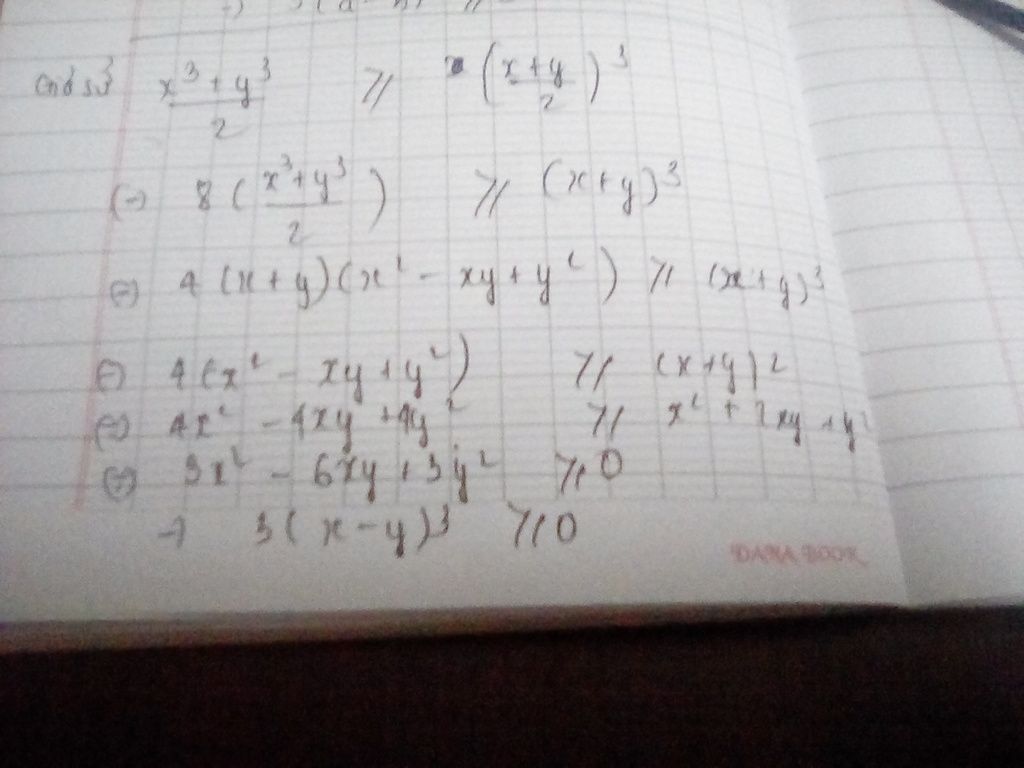 x³ + y³ / 2 ⩾ (x + y / 2)³
(=) 8 (x³ + y³ / 2) ⩾ (x + y)³
(=) 4 (x + y)(x² - xy + y²) ⩾ (x + y)³
(=) 4(x² - xy + y²) ⩾ (x + y)²
(=) 4x² - 4xy + 4y² ⩾ x² + 2xy + y²
(=) 3x² - 6xy + 3y² ⩾ 0
→ 3(x - y)³ ⩾ 0
DANA BOOK